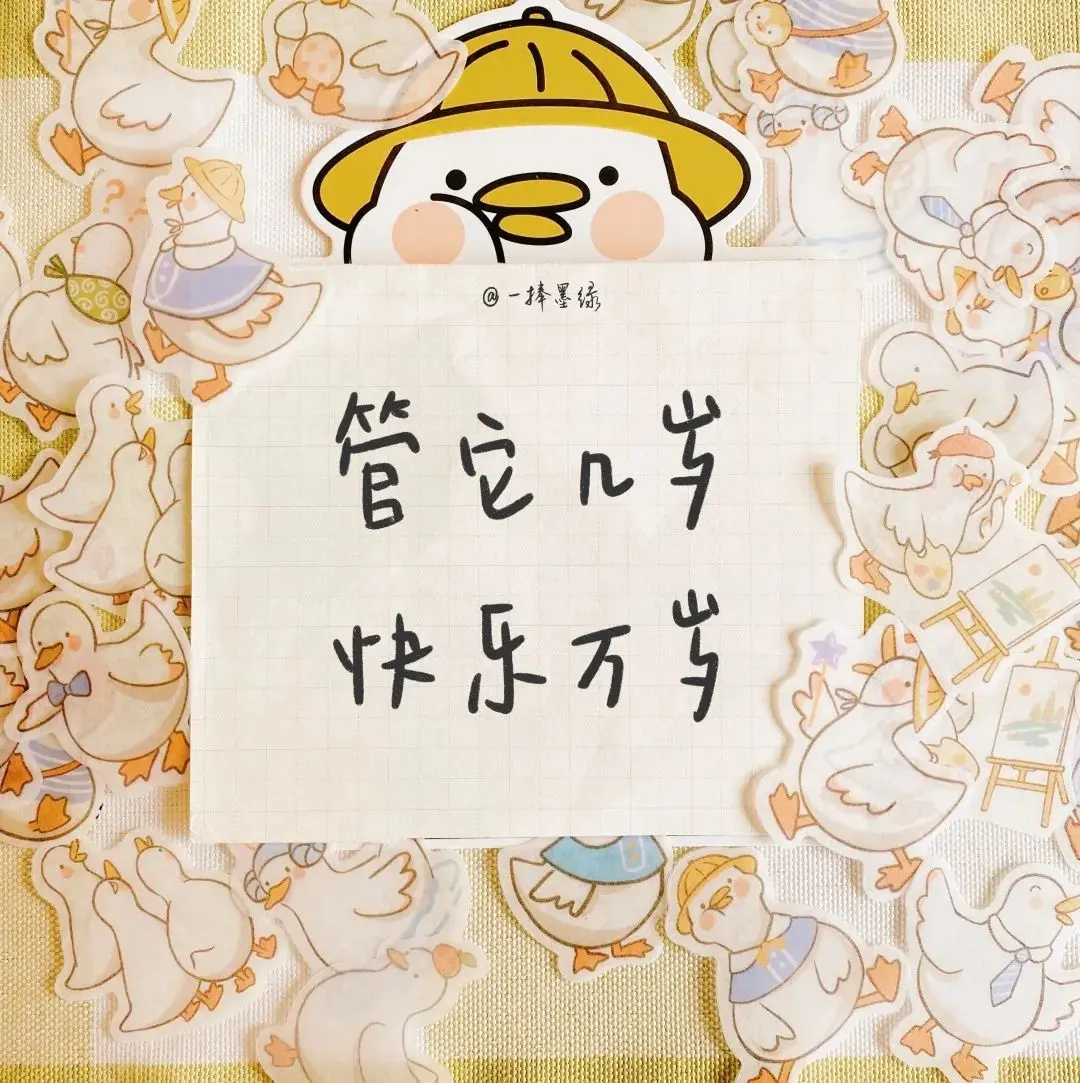 @一捧墨绿
管它几岁
快乐万岁